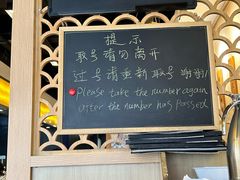 提示
取号请勿离开
过号请重新取号 谢谢!
Please take the number again
after the number has Passed